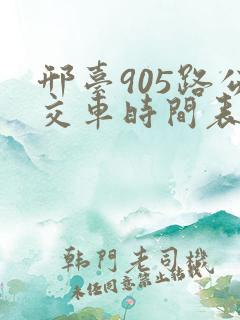 邢臺905路公
交車時間表
韩門老司機
未任同意禁止转载